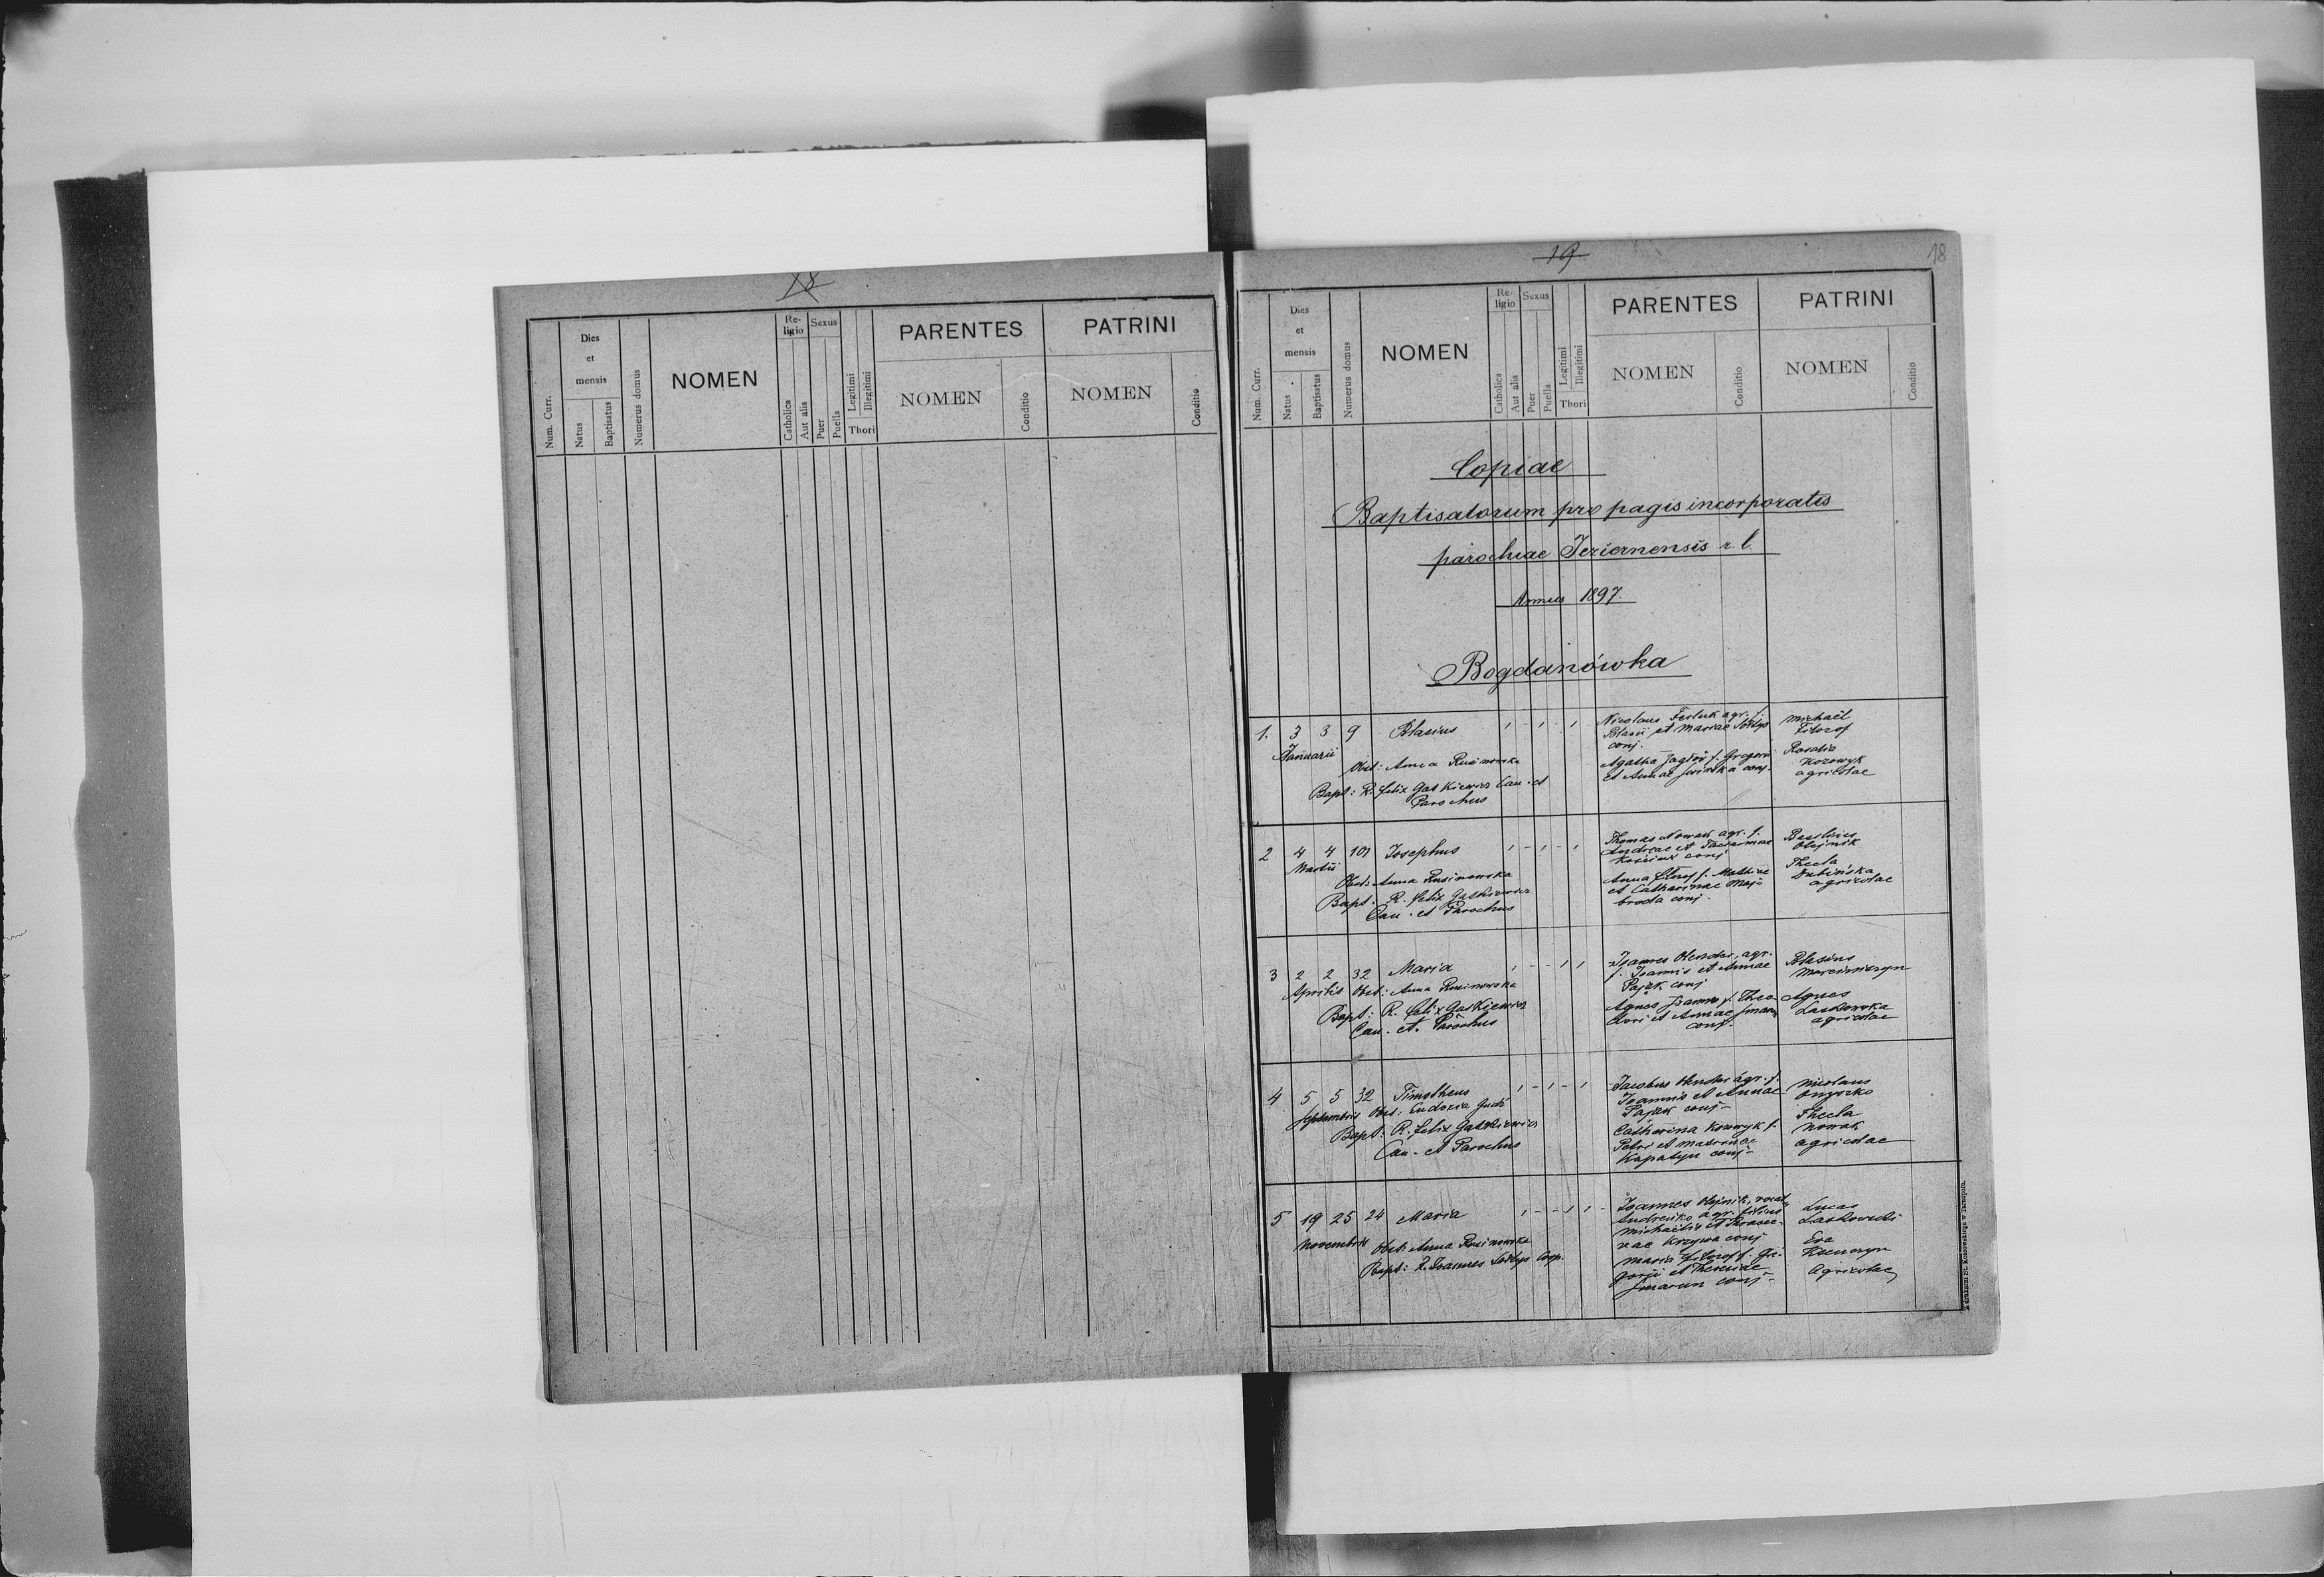 18
Num. Curr.
Dies
et
mensis
Natus
Baptisatus
Numerus domus
NOMEN
Re-
ligio
Catholica
Aut alia
Sexus
Puer
Puella
Legitimi
Illegitimi
Thori
PARENTES
NOMEN
Conditio
PATRINI
NOMEN
Conditio
19
18
Num. Curr.
Dies
et
mensis
Natus
Baptisatus
Numerus domus
NOMEN
Re-
ligio
Catholica
Aut alia
Sexus
Puer
Puella
Legitimi
Illegitimi
Thori
PARENTES
NOMEN
Conditio
PATRINI
NOMEN
Conditio
Copiae
Baptisatorum pro pagis incorporatis
parochiae Jeziernensis r. l.
Annus 1897.
Bogdanówka
1. 3 3 9 Blasius
Januarii
Obst: Anna Rusinowska
Bapt: R. Felix Gatkiewicz Can. et
Parochus
Nicolaus Ferluk agr. f.
Blasii et Mariae Sołtys
conj.
Agatha Jagłów f. Gregorii
et Annae conj.
Michaël
Filozof
Rosalia
Kozowyk
agricolae
2 4 4 101 Josephus
Martii
Obst: Anna Rusinowska
Bapt. R. Felix Gatkiewicz
Can. et Parochus
Thomas Nowak agr. f.
Andreae et
conj
Anna f. Mathiae
et Catharinae Maj-
broda conj.
Basilius
Olejnik
Thecla
Dubińska
agricolae
3 2 2 32 Maria
Aprilis Obst: Anna Rusinowska
Bapt: R. Felix Gatkiewicz
Can. et. Parochus
Joannes Olender, agr.
f. Joannis et Annae
Pająk conj
Agnes f. Theo-
dori et Annae
conj.
Blasius
Marciniszyn
Agnes
Laskowska
agricolae
4 5 5 32 Timotheus
Septembris Obst: Eudocia Gudź
Bapt: R. Felix Gatkiewicz
Can. et Parochus
Jacobus Olender agr. f.
Joannis et Annae
Pająk conj-
Catharina f.
Petri et Matronae
Kapatyn conj-
Nicolaus
Onyszko
Thecla
Nowak
agricolae
5 19 25 24 Maria
Novembris Obst: Anna Rusinowska
Bapt: R. Joannes Sołtys Coop.
Joannes Olejnik,
agr. filius
Michaëlis et
Krzywa conj
Maria Filozof f. Gre-
gorii et Theresiae
Smarun conj-
Lucas
Laskowski
Eva
agricolae
Z drukarni St. Kossowskiego w Tarnopolu.